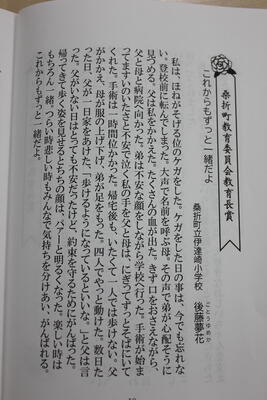 桑折町教育委員会教育長賞
これからもずっと一緒だよ
桑折町立伊達崎小学校 後藤夢花
ごとうゆめか
私は、ほねがそげる位のケガをした。ケガをした日の事は、今でも忘れな
い。登校前に転んでしまった。大声で名前を呼ぶ母。その声で弟が心配そうに
見つめる。父は私をかかえた。たくさんの血が出た。きず口をおさえながら、
父と母と病院へ向かった。弟は不安な顔をしながら学校へ行った。手術が始ま
ってますいのいたさと不安で泣く私の手を父と母は、にぎってずっとそばにいて
くれた。手術は一時間位かかった。帰宅後も、いたくて一人では歩けない。父
がかかえ、母が服の上げ下げ、弟が足をもった。四人でやっと動けた。数日た
った日、父が一日家をあけた。「歩けるようになっているといいな。」と父は言
った。父がいない日はとても不安だったけど、約束を守るためにがんばった。
帰って来て歩く姿を見せるとちちの顔は、パァーと明るくなった。楽しい時は
もちろん一緒。つらい時悲しい時もみんなで気持ちを分けあい、がんばれる。
これからもずっと一緒だよ。